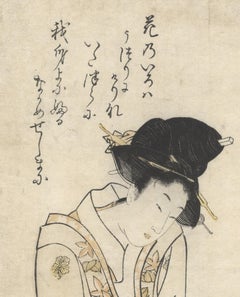 花乃いろハ
うつりに
けりな
いた津らに
我身よに婦る
なかめせしまに